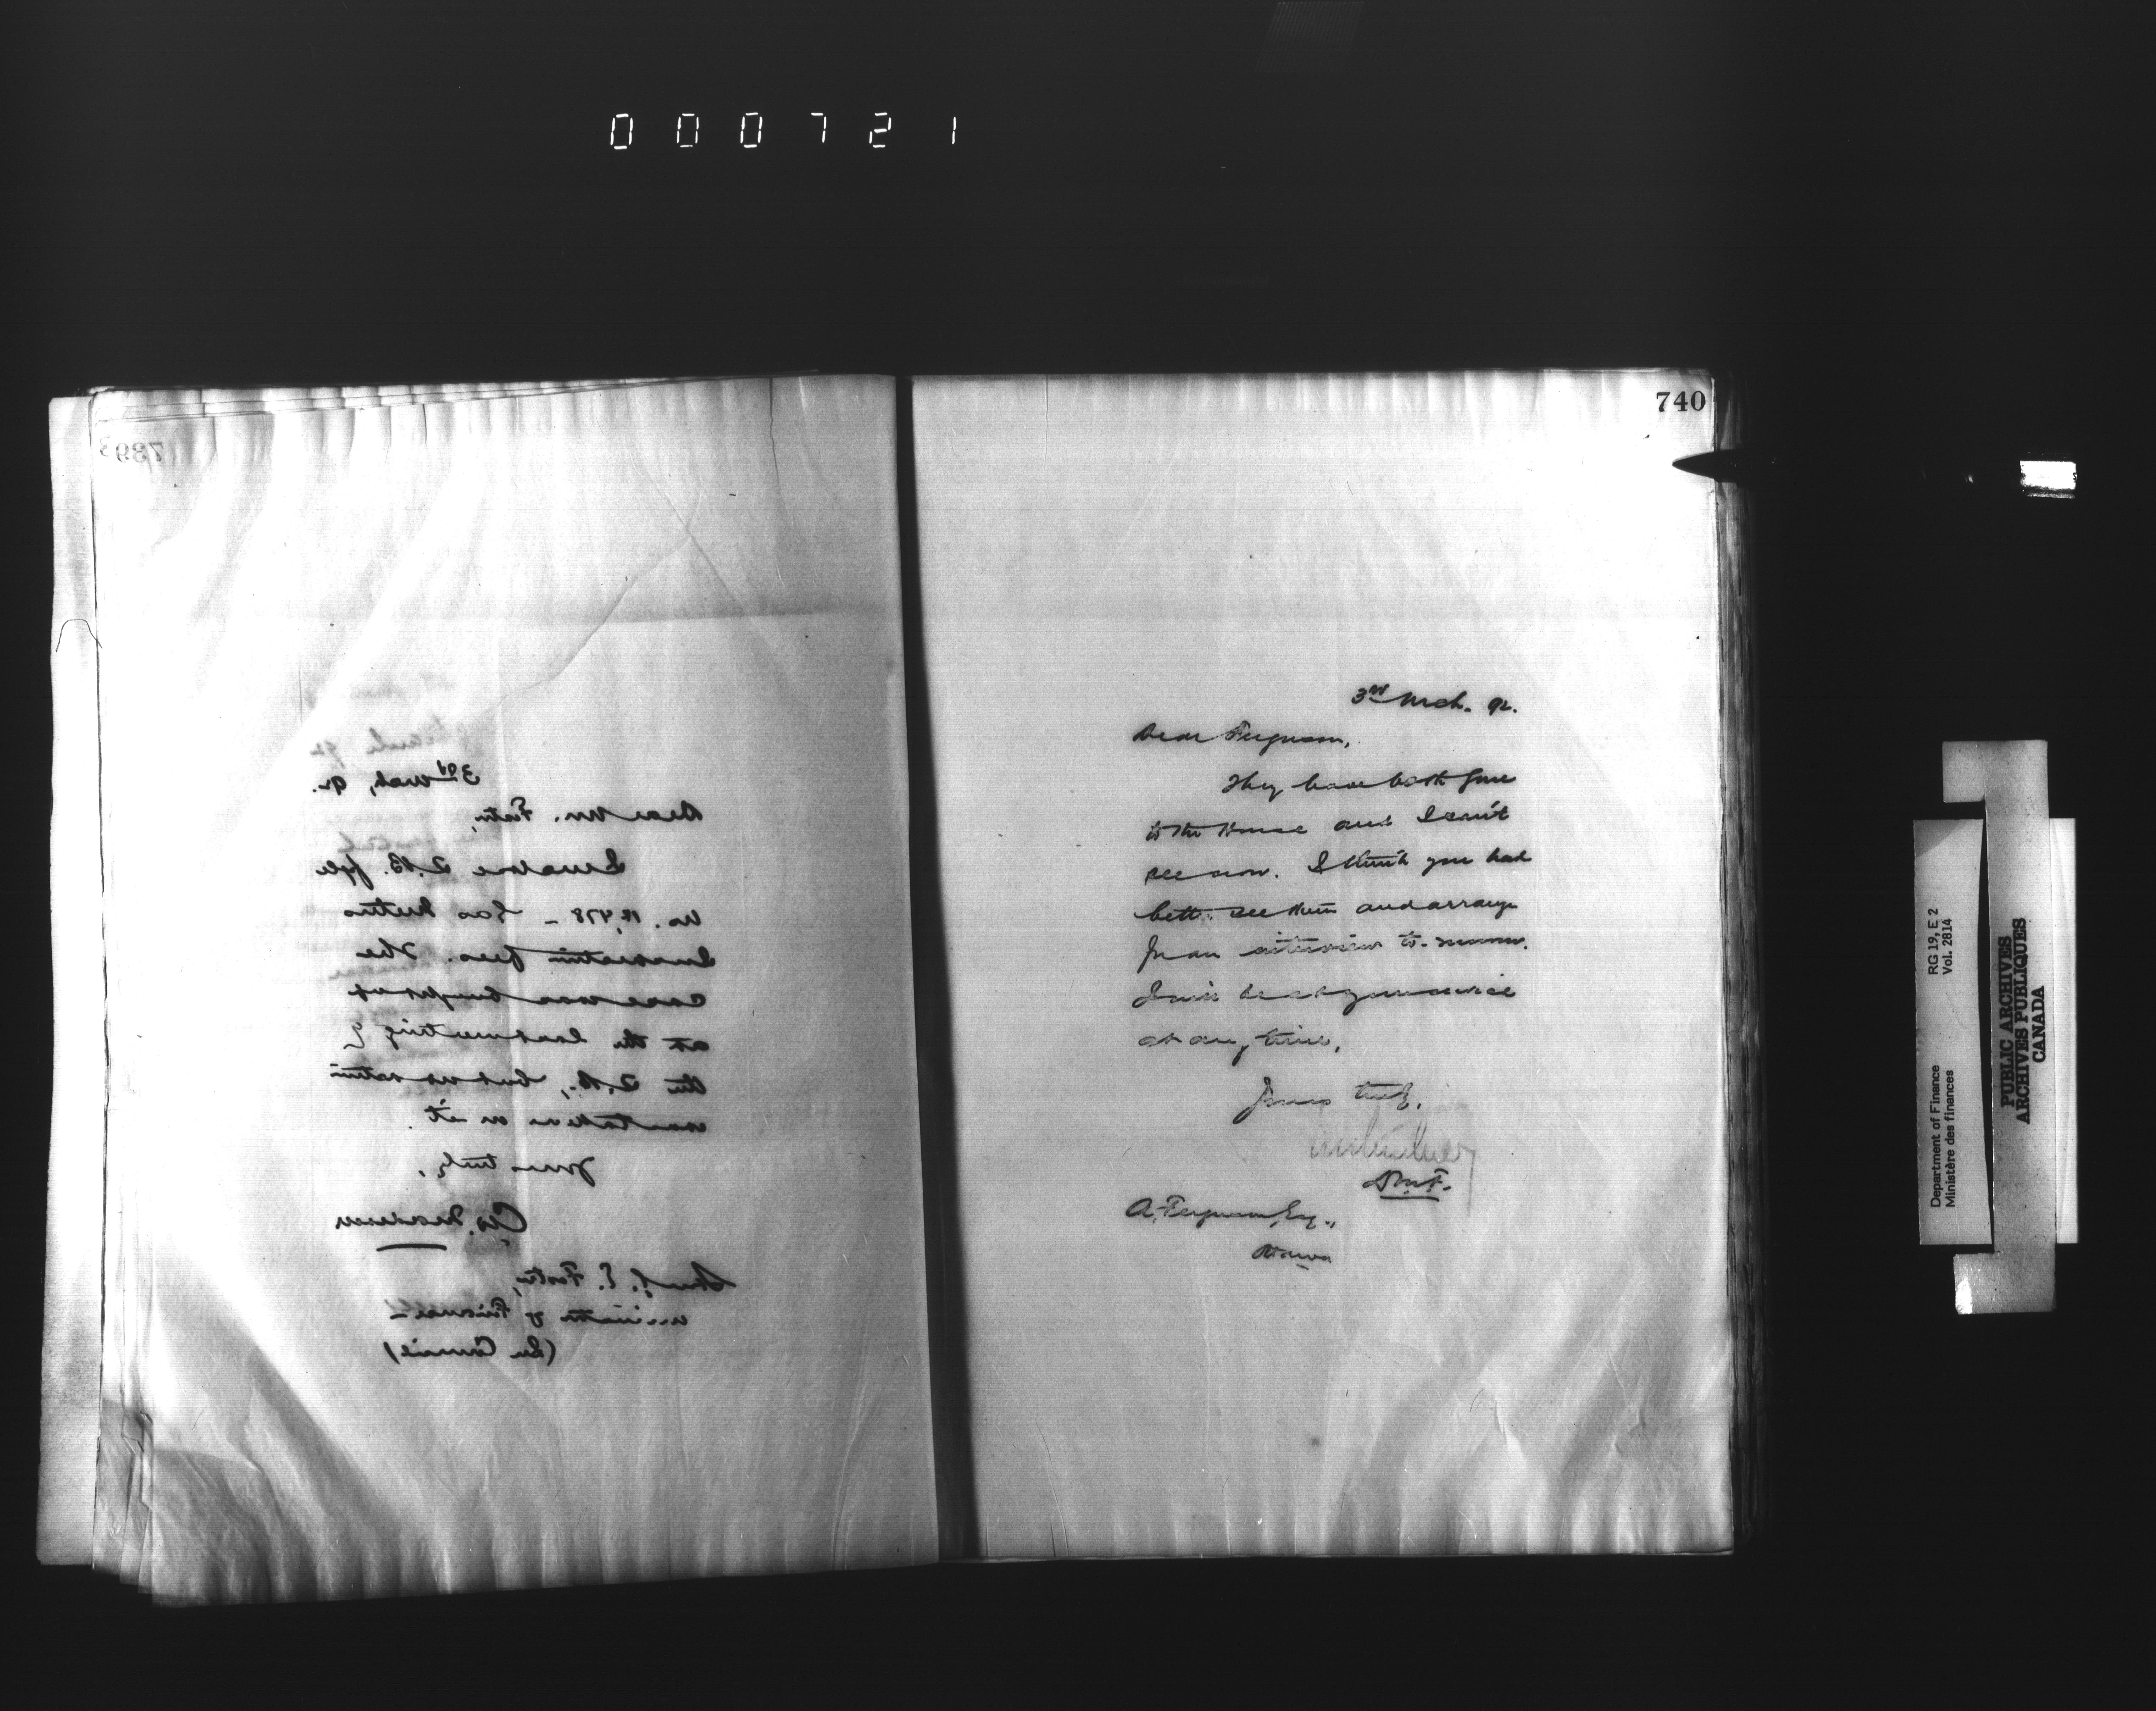 000721
740
3rd Mch. 92.
Dear Ferguson,
They have both gone
to the House and I can't
see now. I think you had
better see them and arrange
for an interview to-morrow.
I will be at your service
at any time.
Yours truly,
DMF.
A. Ferguson Esq.,
Ottawa
739
3rd Mch, 92.
Dear Mr. Foster,
I enclose T.B. file
No. 12,478 - Gas Meters
Inspection fees. The
case was brought up
at the last meeting of
the T.B., but no action
was taken on it.
Yours truly,
Hon. G. E. Foster,
Minister of Finance
(In Council)
Department of Finance RG 19, E 2
Ministère des finances Vol. 2814
PUBLIC ARCHIVES
ARCHIVES PUBLIQUES
CANADA